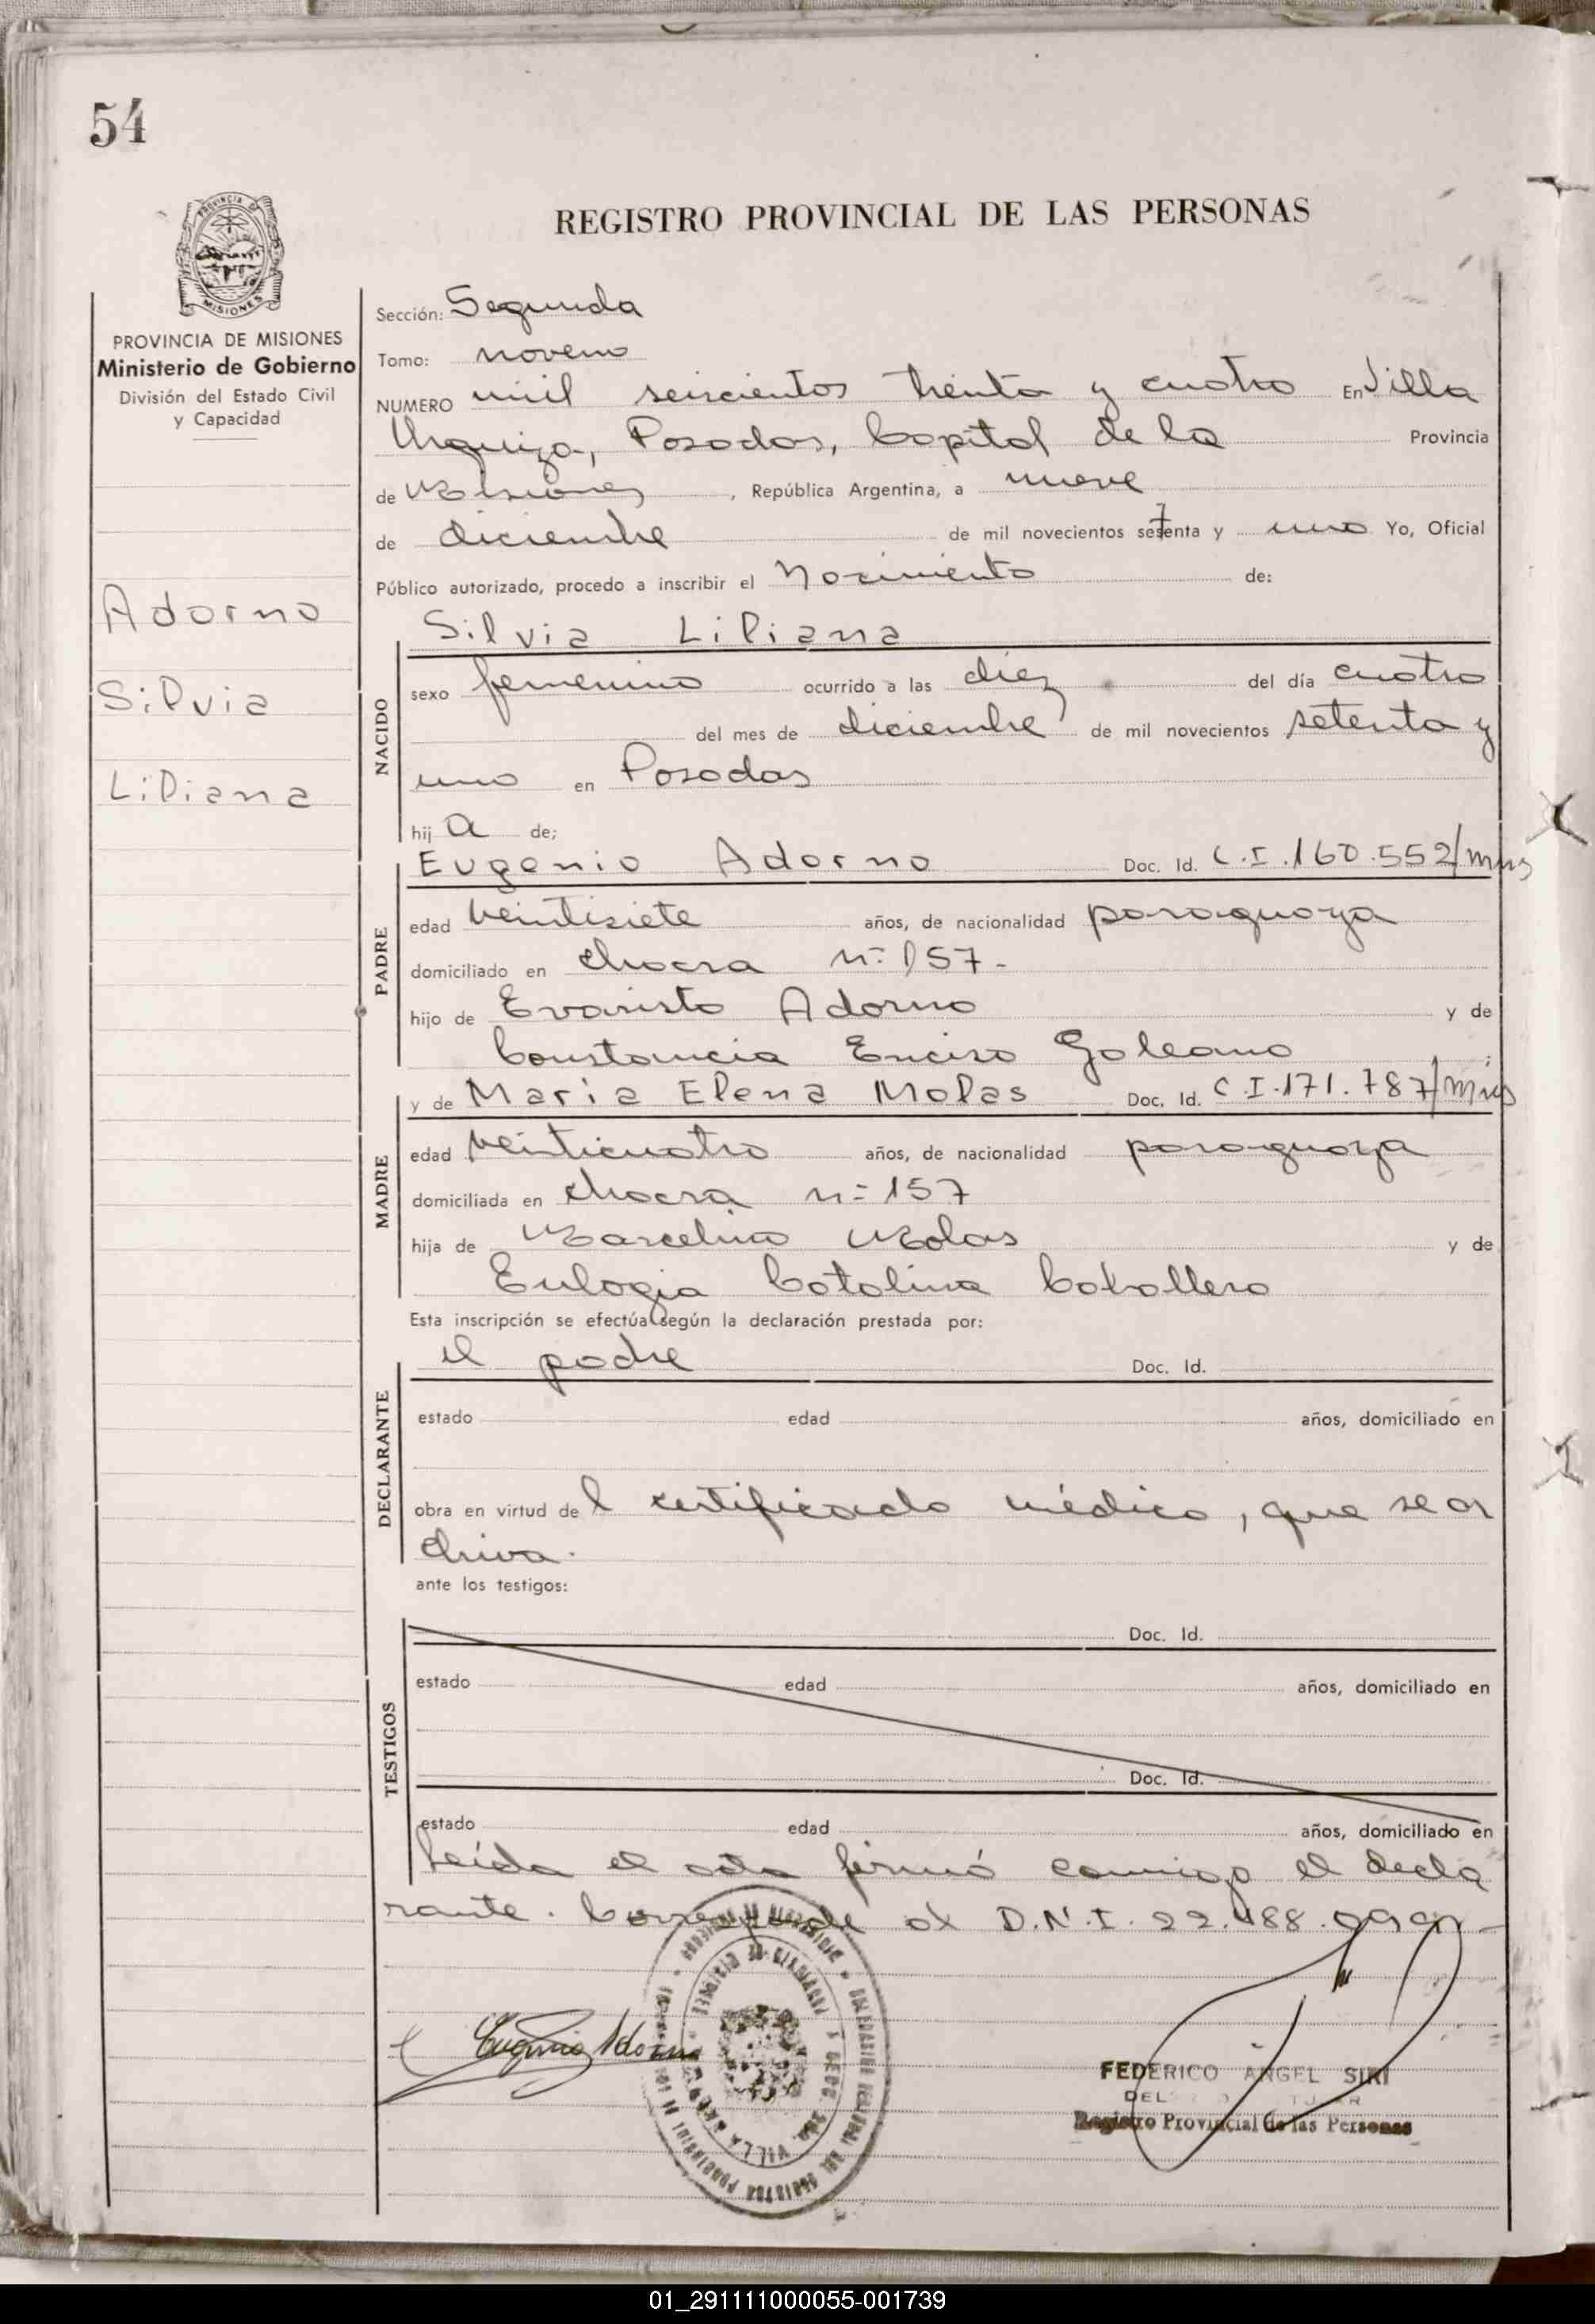 54
PROVINCIA DE
MISIONES
PROVINCIA DE MISIONES
Ministerio de Gobierno
División del Estado Civil
y Capacidad
Adorno
Silvia
Liliana
REGISTRO PROVINCIAL DE LAS PERSONAS
Sección: Segunda
Tomo: noveno
NUMERO mil seiscientos treinta y cuatro En Villa
Urquiza, Posadas, Capital de la Provincia
de Misiones, República Argentina, a nueve
de diciembre de mil novecientos setenta y uno Yo, Oficial
Público autorizado, procedo a inscribir el Nacimiento de:
Silvia Liliana
NACIDO
sexo femenino ocurrido a las diez del día cuatro
del mes de diciembre de mil novecientos setenta y
uno en Posadas
hij a de;
Eugenio Adorno Doc. Id. C.I.160.552/mns
PADRE
edad veintisiete años, de nacionalidad paraguaya
domiciliado en chacra nº 157-
hijo de Evaristo Adorno y de
Constancia Enciso Galeano ;
y de Maria Elena Molas Doc. Id. C.I.171.787/Mns
MADRE
edad veinticuatro años, de nacionalidad paraguaya
domiciliada en chacra nº 157
hija de Marcelino Molas y de
Eulogia Catalina Caballero
Esta inscripción se efectúa según la declaración prestada por:
el padre Doc. Id.
DECLARANTE
estado edad años, domiciliado en
obra en virtud de l certificado médico, que se ar
chiva.
ante los testigos:
Doc. Id.
TESTIGOS
estado edad años, domiciliado en
Doc. Id.
estado edad años, domiciliado en
Leída el acta firmó conmigo el decla
rante. Corresponde al D.N.I. 22.488.
Eugenio Adorno
FEDERICO ANGEL SIRI
Registro Provincial de las Personas
01_291111000055-001739